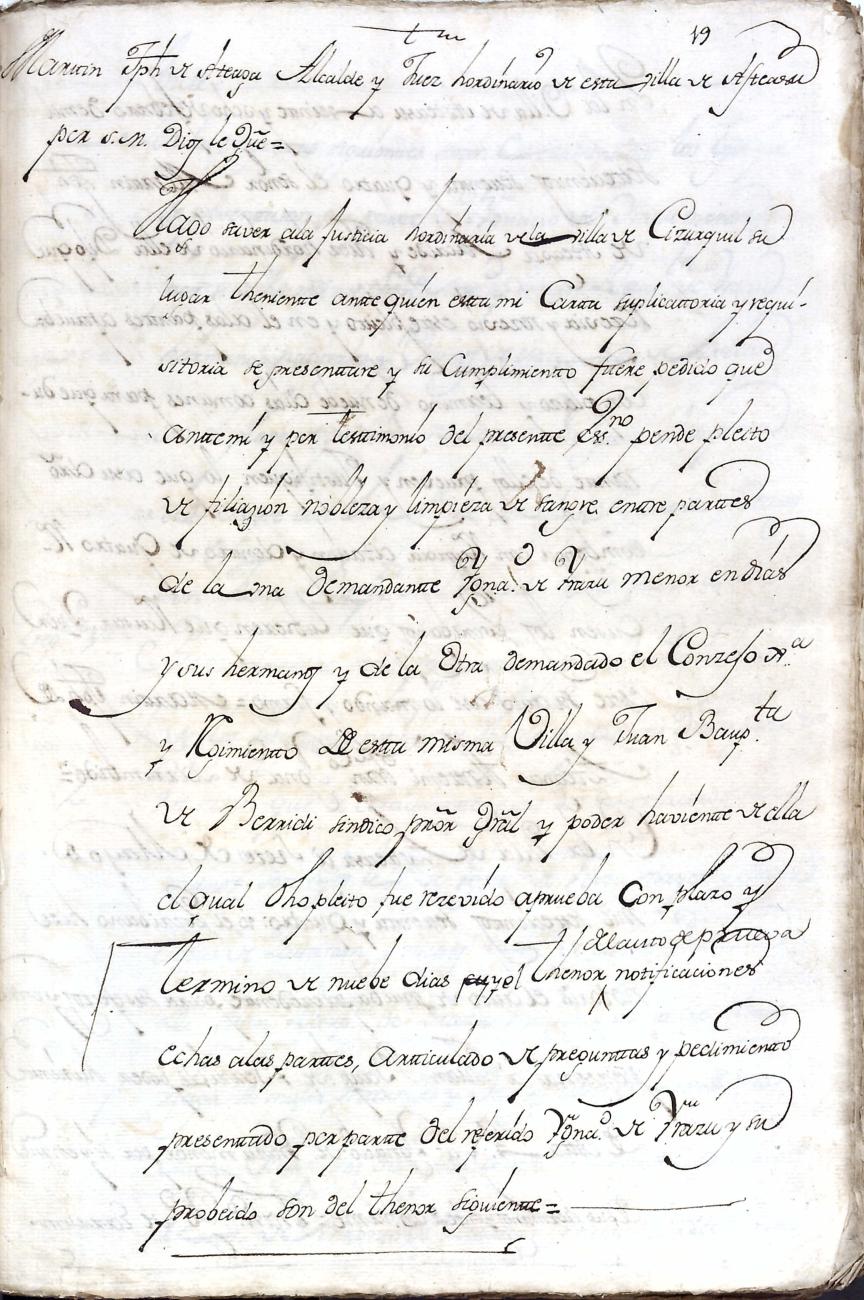 19
Martin Jph de Ateaga Alcalde y Juez hordinario de esta villa de Asteasu
per S. M. Dios le Gũe =
Hago saver ala Justicia hordinaria de la villa de Cizurquil su
lugar theniente ante quien estta mi Cartta suplicattoria y requi-
sitoria se presenttare y su Cumplimientto fuere pedido que
anttemi y per Testtimonio del presentte ess.no pende pleito
de filiazion nobleza y limpieza de sangre entre parttes
de la una Demandantte Ygna.o de Yrazu menor en dias
y sus hermanos y de la Otra demandado el Conzejo
y Rejimientto de estta misma Villa y Juan Baup.ta
de Berridi sindico prõr Grãl y poder havientte de ella
el qual dho pleito fue rezevido aprueba Con plazo y
termino de nuebe dias cuyo thenor del auto de prueva notificaciones
echas alas parttes, Artticulado de pregunttas y pedimientto
presenttado por partte del referido Ygna.o de Yrazu y su
probeido son del thenor siguientte =